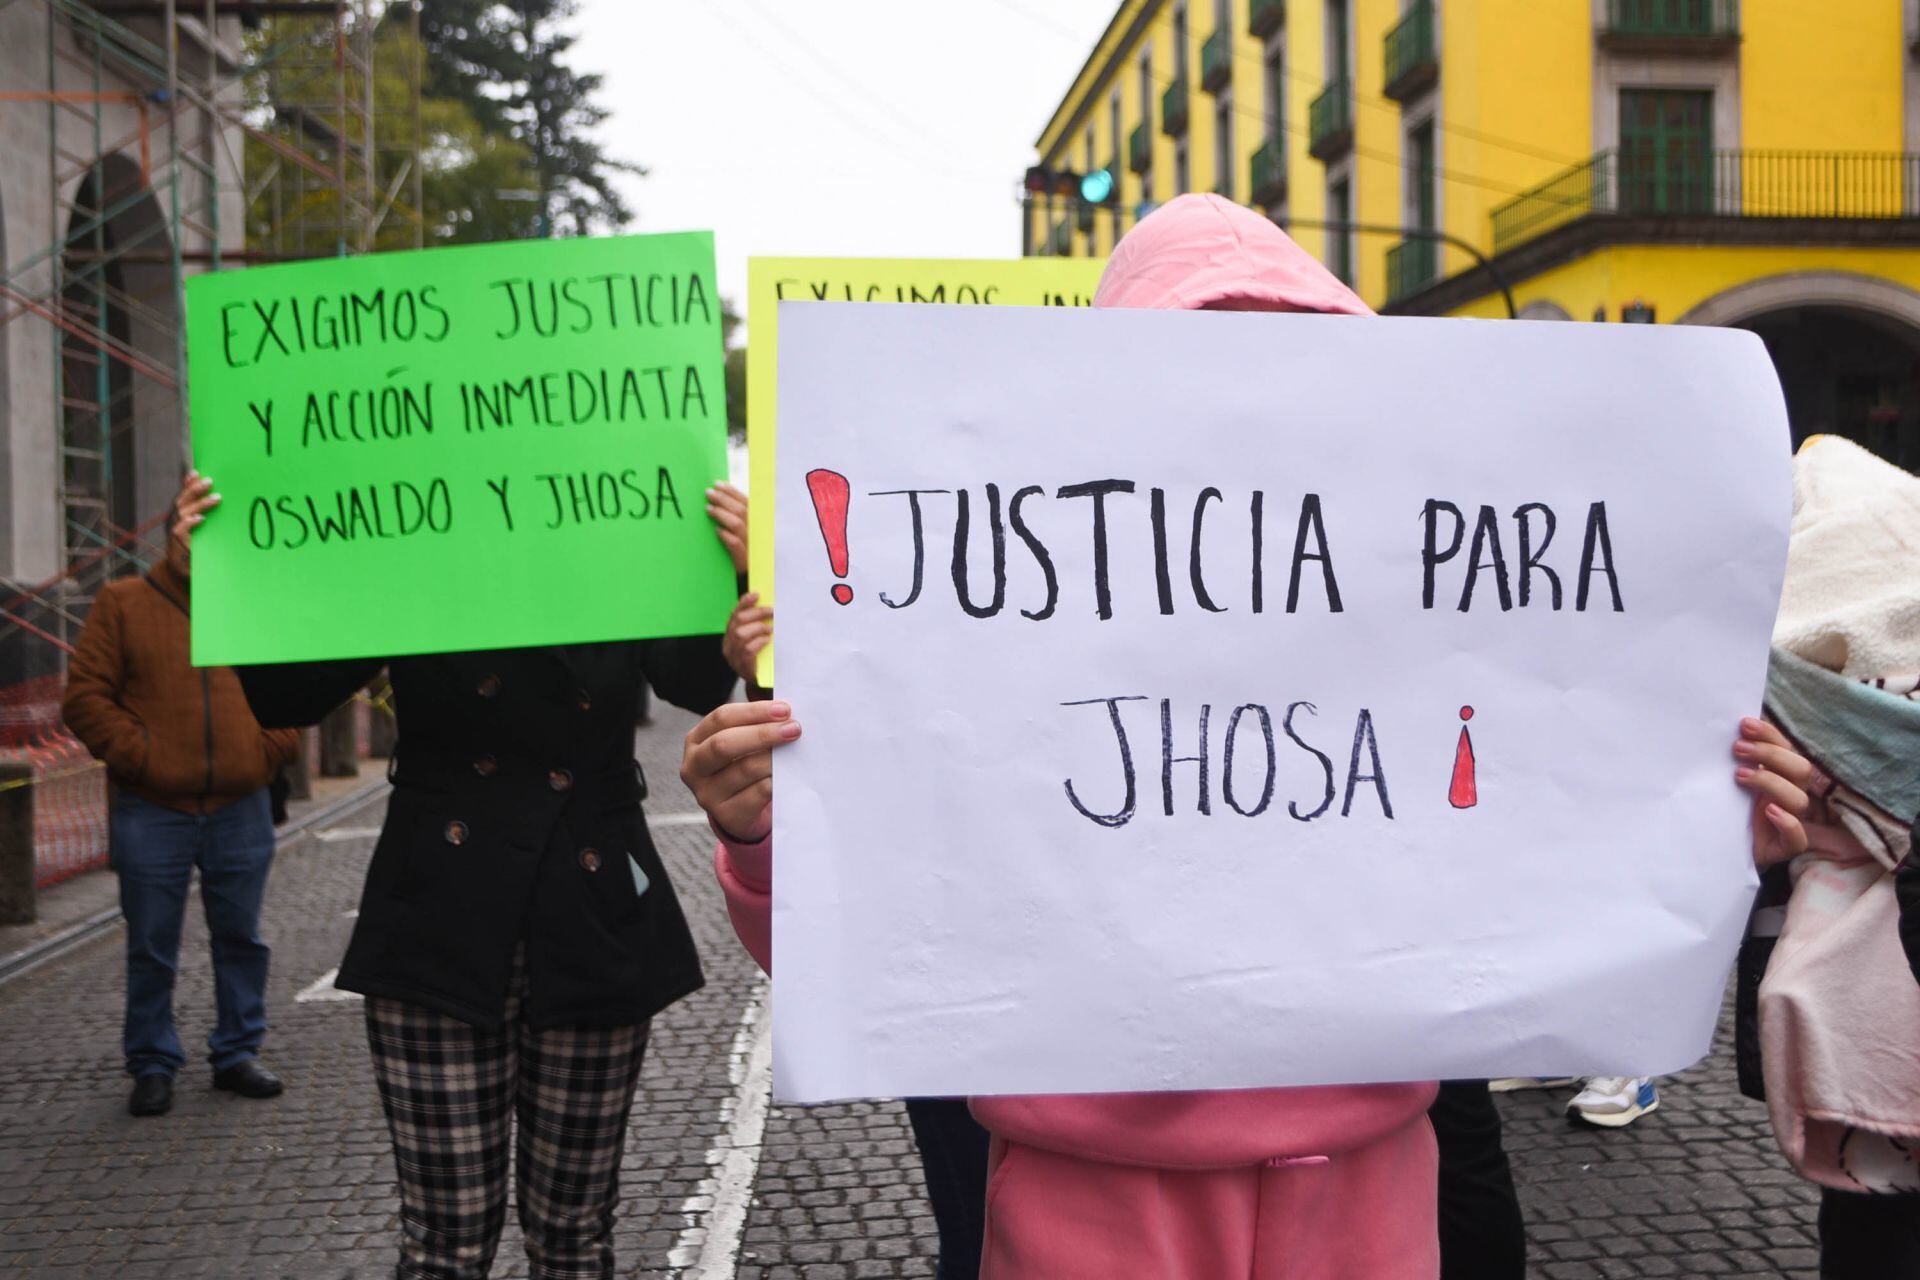 EXIGIMOS JUSTICIA
Y ACCIÓN INMEDIATA
OSWALDO Y JHOSA
EXIGIMOS
!JUSTICIA PARA
JHOSA ¡